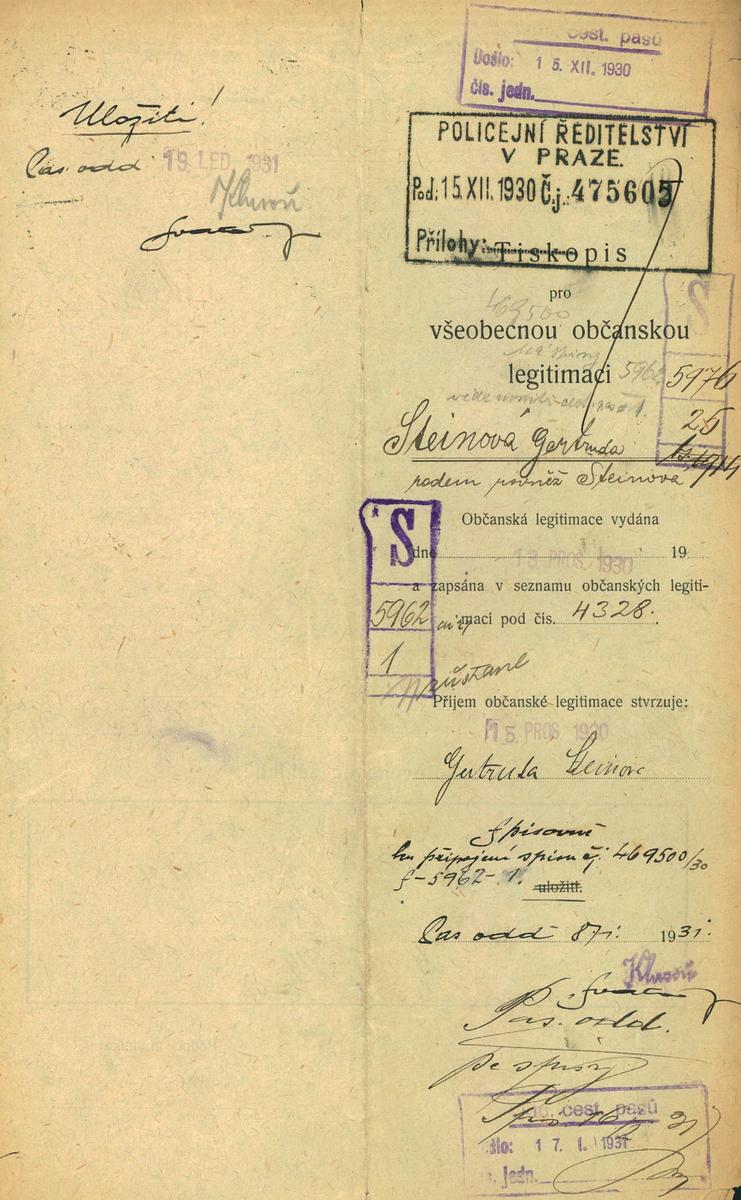 Uložiti!
Pas. odd 19. LED. 1931
Klusoň
cest. pasů
Došlo: 15. XII. 1930
čís. jedn.
POLICEJNÍ ŘEDITELSTVÍ
V PRAZE.
Pod: 15. XII. 1930 Č.j.: 475605
Přílohy:
Tiskopis
pro
469500
všeobecnou občanskou
legitimaci 5962
S
5976
25
Steinová Gertruda
rodem rovněž Steinova
S
5962
1
Občanská legitimace vydána
dne 13. PROS. 1930 19
a zapsána v seznamu občanských legiti-
mací pod čís. 4328.
Příjem občanské legitimace stvrzuje:
15. PROS. 1930
Gertruda Steinova
Spisovně
ku připojení spisu čj. 469500/30
S-5962-1.
uložiti.
Pas odd 8/I. 1931.
Klusoň
Pas. odd.
pe spisy
cest. pasů
šlo: 17. I. 1931
s. jedn.